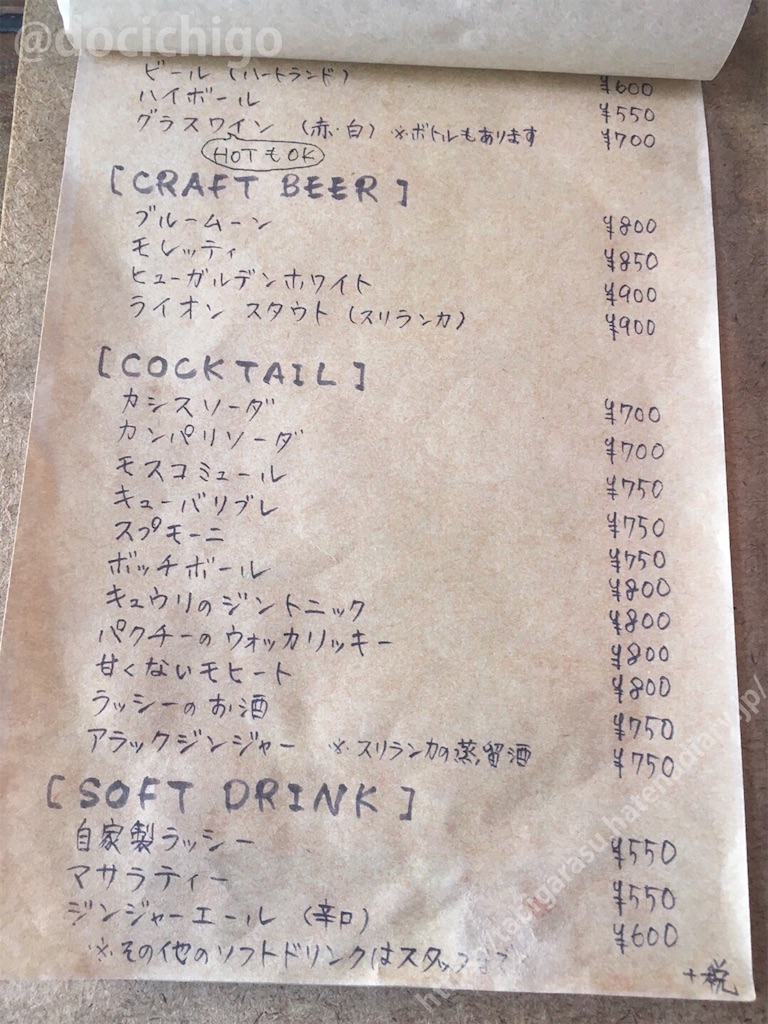 @docichigo
ビール (ハートランド) ¥600
ハイボール ¥550
グラスワイン (赤・白) ※ボトルもあります ¥700
HOTもOK
[CRAFT BEER]
ブルームーン ¥800
モレッティ ¥850
ヒューガルデンホワイト ¥900
ライオン スタウト (スリランカ) ¥900
[COCKTAIL]
カシスソーダ ¥700
カンパリソーダ ¥700
モスコミュール ¥750
キューバリブレ ¥750
スプモーニ ¥750
ボッチボール ¥800
キュウリのジントニック ¥800
パクチーのウォッカリッキー ¥800
甘くないモヒート ¥800
ラッシーのお酒 ¥750
アラックジンジャー ※スリランカの蒸留酒 ¥750
[SOFT DRINK]
自家製ラッシー ¥550
マサラティー ¥550
ジンジャーエール (辛口) ¥600
※その他のソフトドリンクはスタッフまで
+税